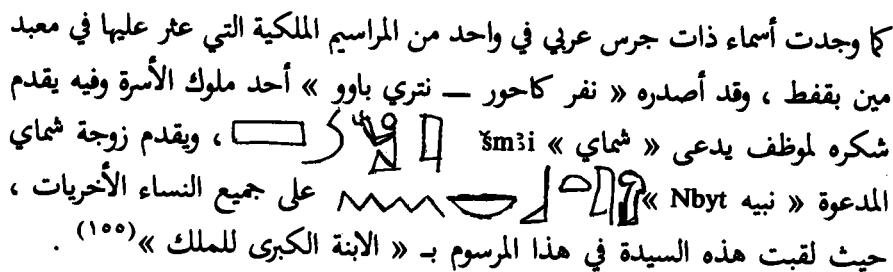 كما وجدت أسماء ذات جرس عربي في واحد من المراسيم الملكية التي عثر عليها في معبد
مين بقفط ، وقد أصدره « نفر كاحور ــ نتري باوو » أحد ملوك الأسرة وفيه يقدم
شكره لموظف يدعى « شماي » šmꜣi ، ويقدم زوجة شماي
المدعوة « نبيه Nbyt » على جميع النساء الأخريات ،
حيث لقبت هذه السيدة في هذا المرسوم بـ « الابنة الكبرى للملك »(١٥٥) .